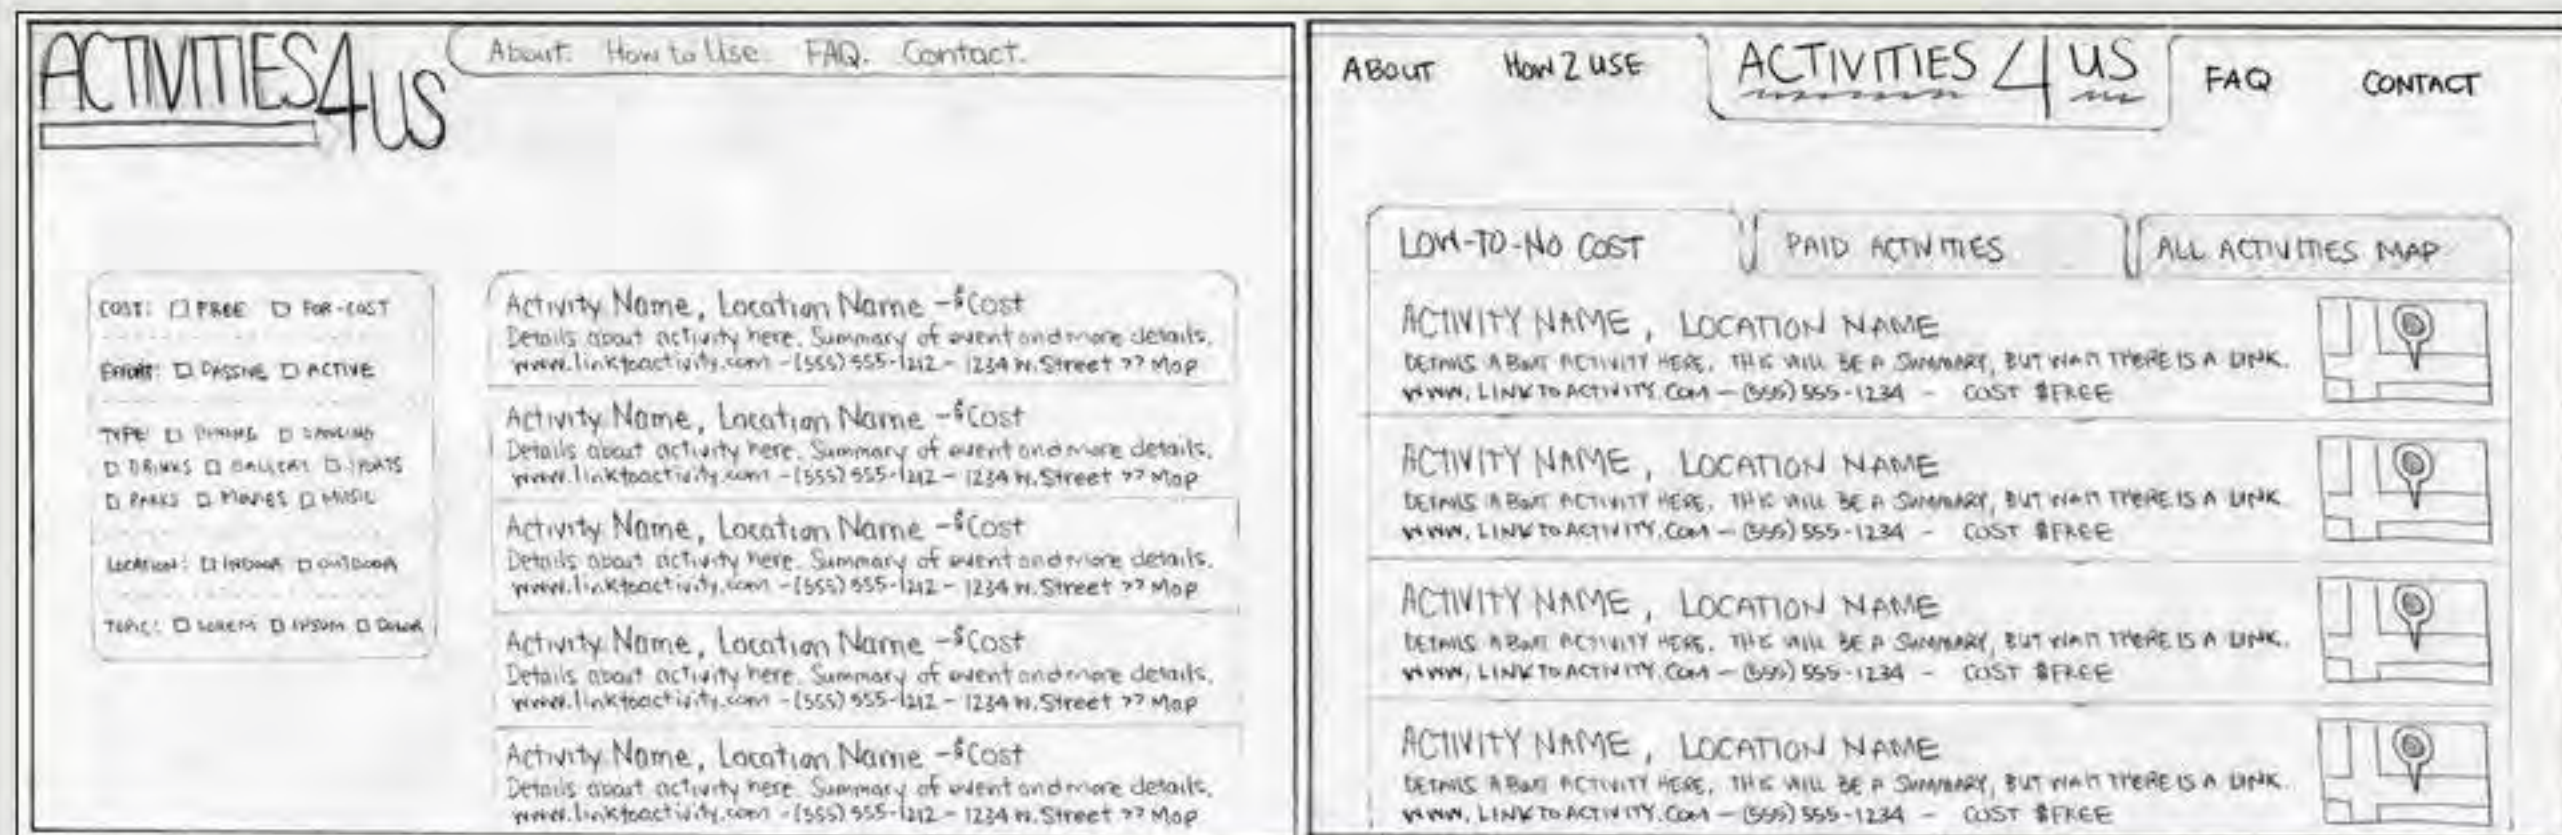 ACTIVITIES4US
About. How to Use. FAQ. Contact.
COST: FREE FOR-COST
EFFORT: PASSIVE ACTIVE
TYPE: DINING DANCING
DRINKS GALLERY SPORTS
PARKS MOVIES MUSIC
LOCATION: INDOOR OUTDOOR
TOPIC: LOREM IPSUM DOLOR
Activity Name, Location Name - $Cost
Details about activity here. Summary of event and more details.
www.linktoactivity.com - (555) 555-1212 - 1234 W. Street >> Map
Activity Name, Location Name - $Cost
Details about activity here. Summary of event and more details.
www.linktoactivity.com - (555) 555-1212 - 1234 W. Street >> Map
Activity Name, Location Name - $Cost
Details about activity here. Summary of event and more details.
www.linktoactivity.com - (555) 555-1212 - 1234 W. Street >> Map
Activity Name, Location Name - $Cost
Details about activity here. Summary of event and more details.
www.linktoactivity.com - (555) 555-1212 - 1234 W. Street >> Map
Activity Name, Location Name - $Cost
Details about activity here. Summary of event and more details.
www.linktoactivity.com - (555) 555-1212 - 1234 W. Street >> Map
ABOUT HOW 2 USE ACTIVITIES 4 US FAQ CONTACT
LOW-TO-NO COST PAID ACTIVITIES ALL ACTIVITIES MAP
ACTIVITY NAME, LOCATION NAME
DETAILS ABOUT ACTIVITY HERE. THIS WILL BE A SUMMARY, BUT WAIT THERE IS A LINK.
WWW.LINKTOACTIVITY.COM - (555) 555-1234 - COST $FREE
ACTIVITY NAME, LOCATION NAME
DETAILS ABOUT ACTIVITY HERE. THIS WILL BE A SUMMARY, BUT WAIT THERE IS A LINK.
WWW.LINKTOACTIVITY.COM - (555) 555-1234 - COST $FREE
ACTIVITY NAME, LOCATION NAME
DETAILS ABOUT ACTIVITY HERE. THIS WILL BE A SUMMARY, BUT WAIT THERE IS A LINK.
WWW.LINKTOACTIVITY.COM - (555) 555-1234 - COST $FREE
ACTIVITY NAME, LOCATION NAME
DETAILS ABOUT ACTIVITY HERE. THIS WILL BE A SUMMARY, BUT WAIT THERE IS A LINK.
WWW.LINKTOACTIVITY.COM - (555) 555-1234 - COST $FREE